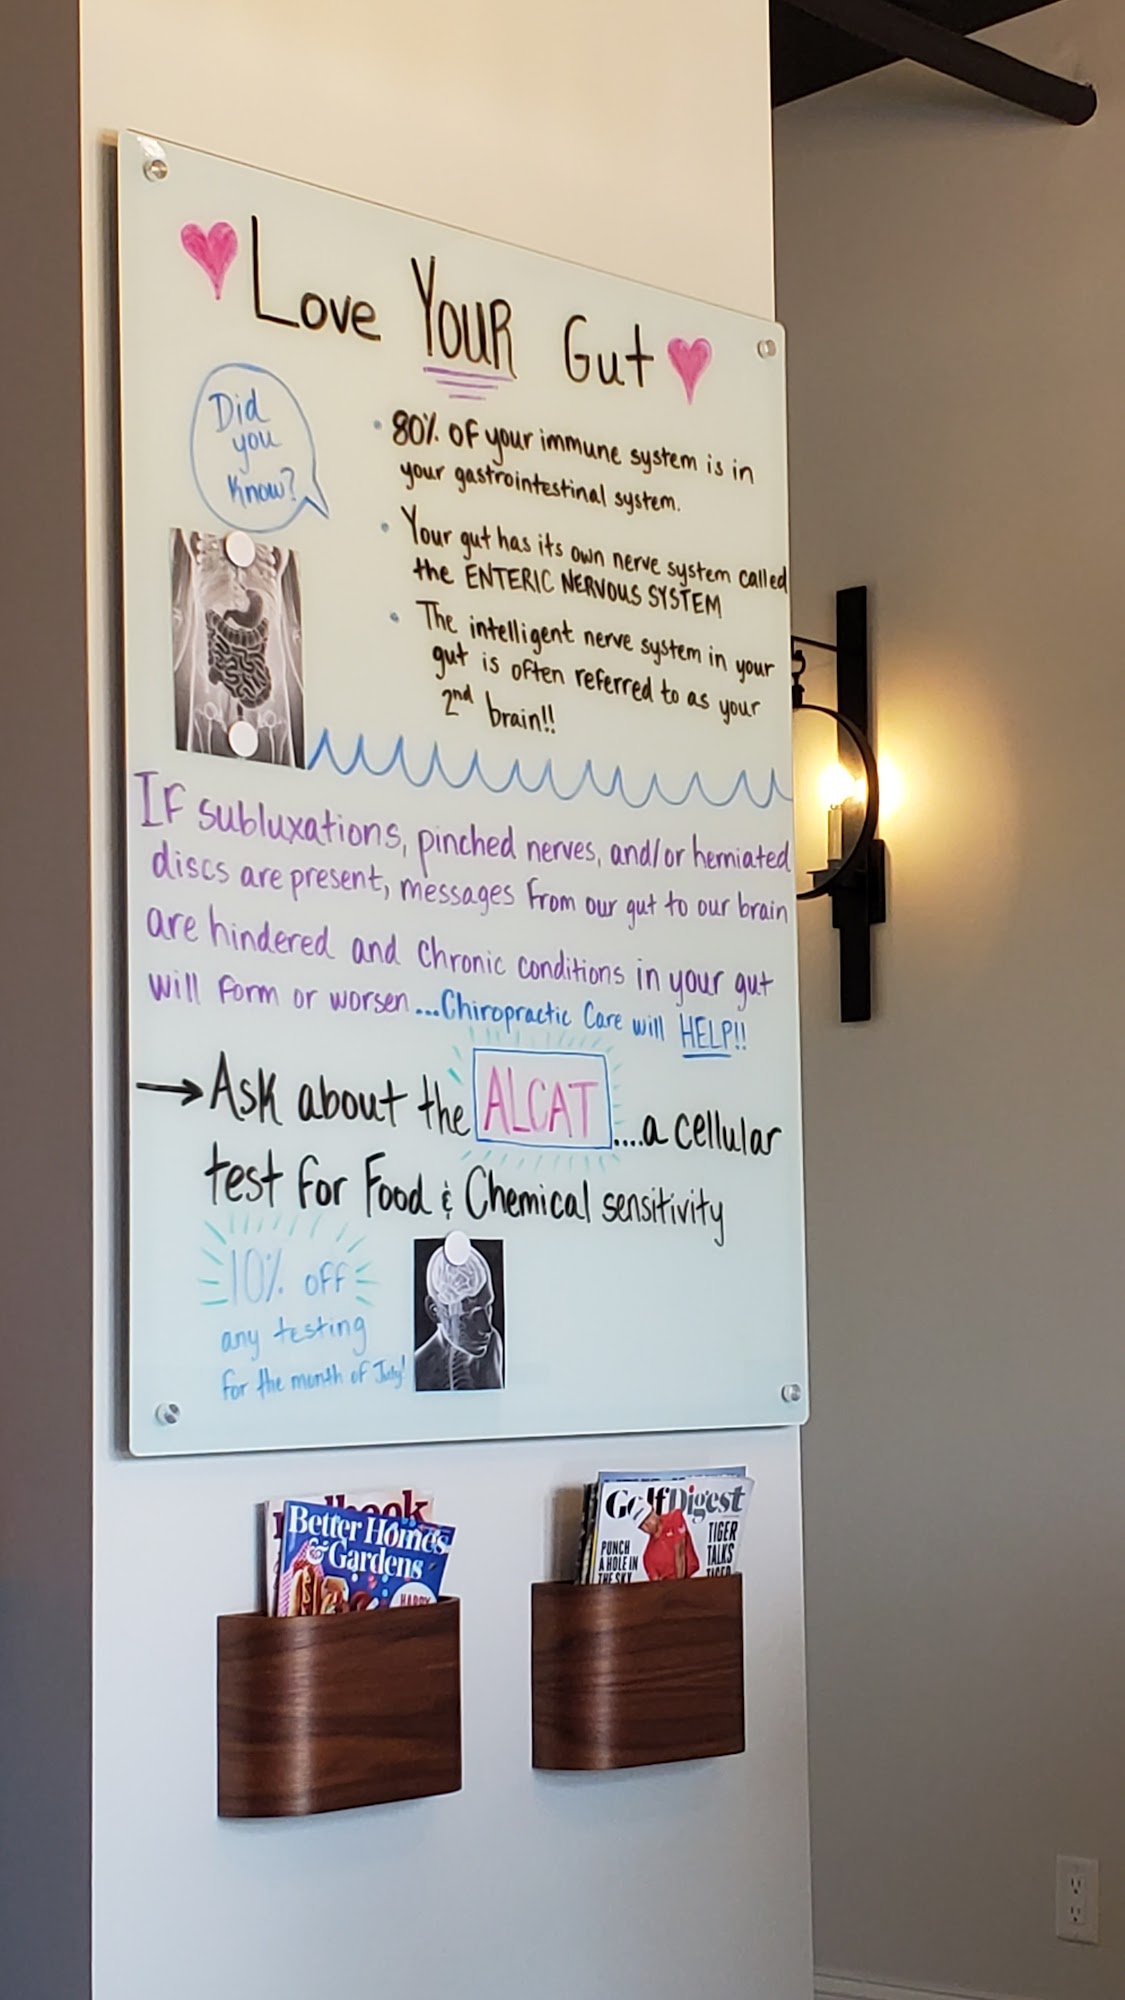 Love YOUR Gut
Did
you
know?
• 80% of your immune system is in
your gastrointestinal system.
• Your gut has its own nerve system called
the ENTERIC NERVOUS SYSTEM
• The intelligent nerve system in your
gut is often referred to as your
2nd brain!!
If subluxations, pinched nerves, and/or herniated
discs are present, messages from our gut to our brain
are hindered and chronic conditions in your gut
will form or worsen...Chiropractic Care will HELP!!
→ Ask about the ALCAT....a cellular
test for Food & Chemical sensitivity
10% off
any testing
for the month of July!
Better Homes
& Gardens
Golf Digest
PUNCH
A HOLE IN
THE SKY
TIGER
TALKS
TIGER